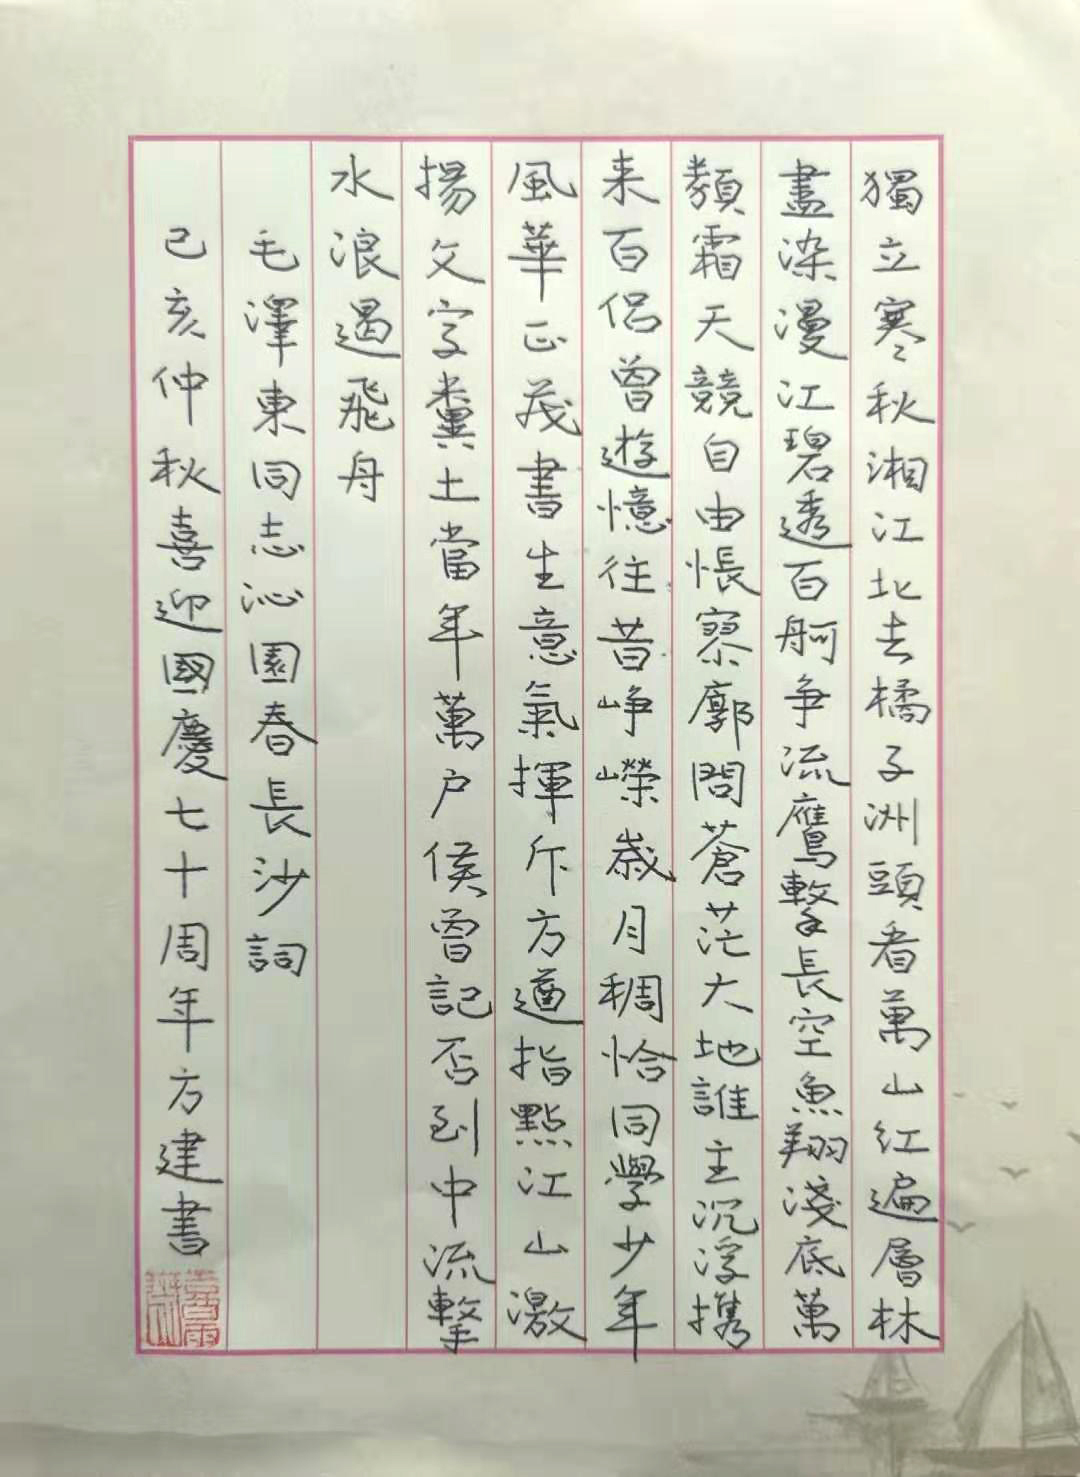 獨立寒秋湘江北去橘子洲頭看萬山紅遍層林
盡染漫江碧透百舸争流鷹擊長空魚翔淺底萬
類霜天競自由悵寥廓問蒼茫大地誰主沉浮携
来百侣曾遊憶往昔崢嶸歲月稠恰同學少年
風華正茂書生意氣揮斥方遒指點江山激
揚文字糞土當年萬户侯曾記否到中流擊
水浪遏飛舟
毛澤東同志沁園春長沙詞
己亥仲秋喜迎國慶七十周年方建書